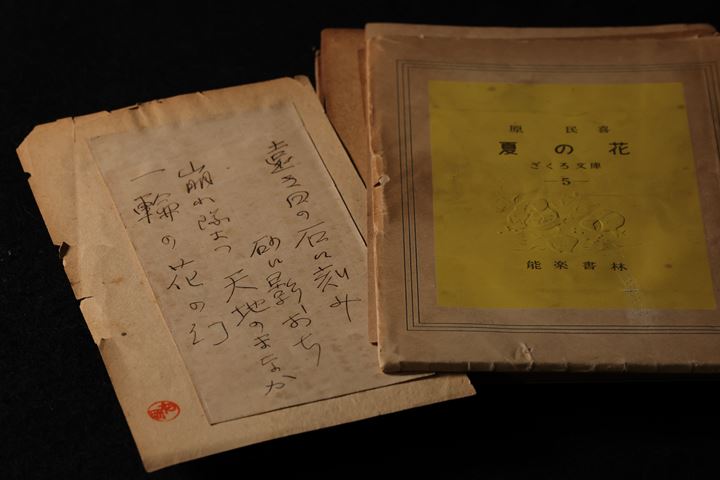 遠き日の石に刻み
砂に影おち
崩れ墜つ 天地のまなか
一輪の花の幻
原民喜
夏の花
ざくろ文庫
5
能楽書林